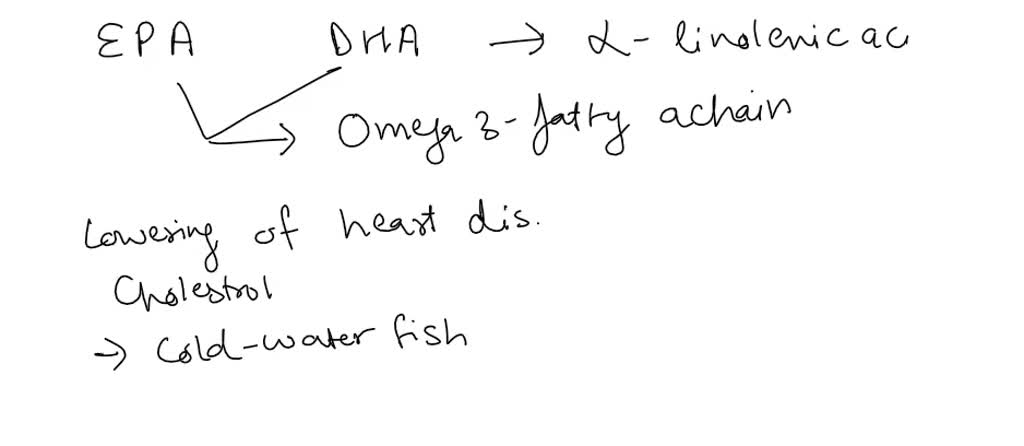 EPA DHA → α- linolenic ac
Omega 3- fatty achain
Lowering of heart dis.
Cholestrol
→ Cold-water fish